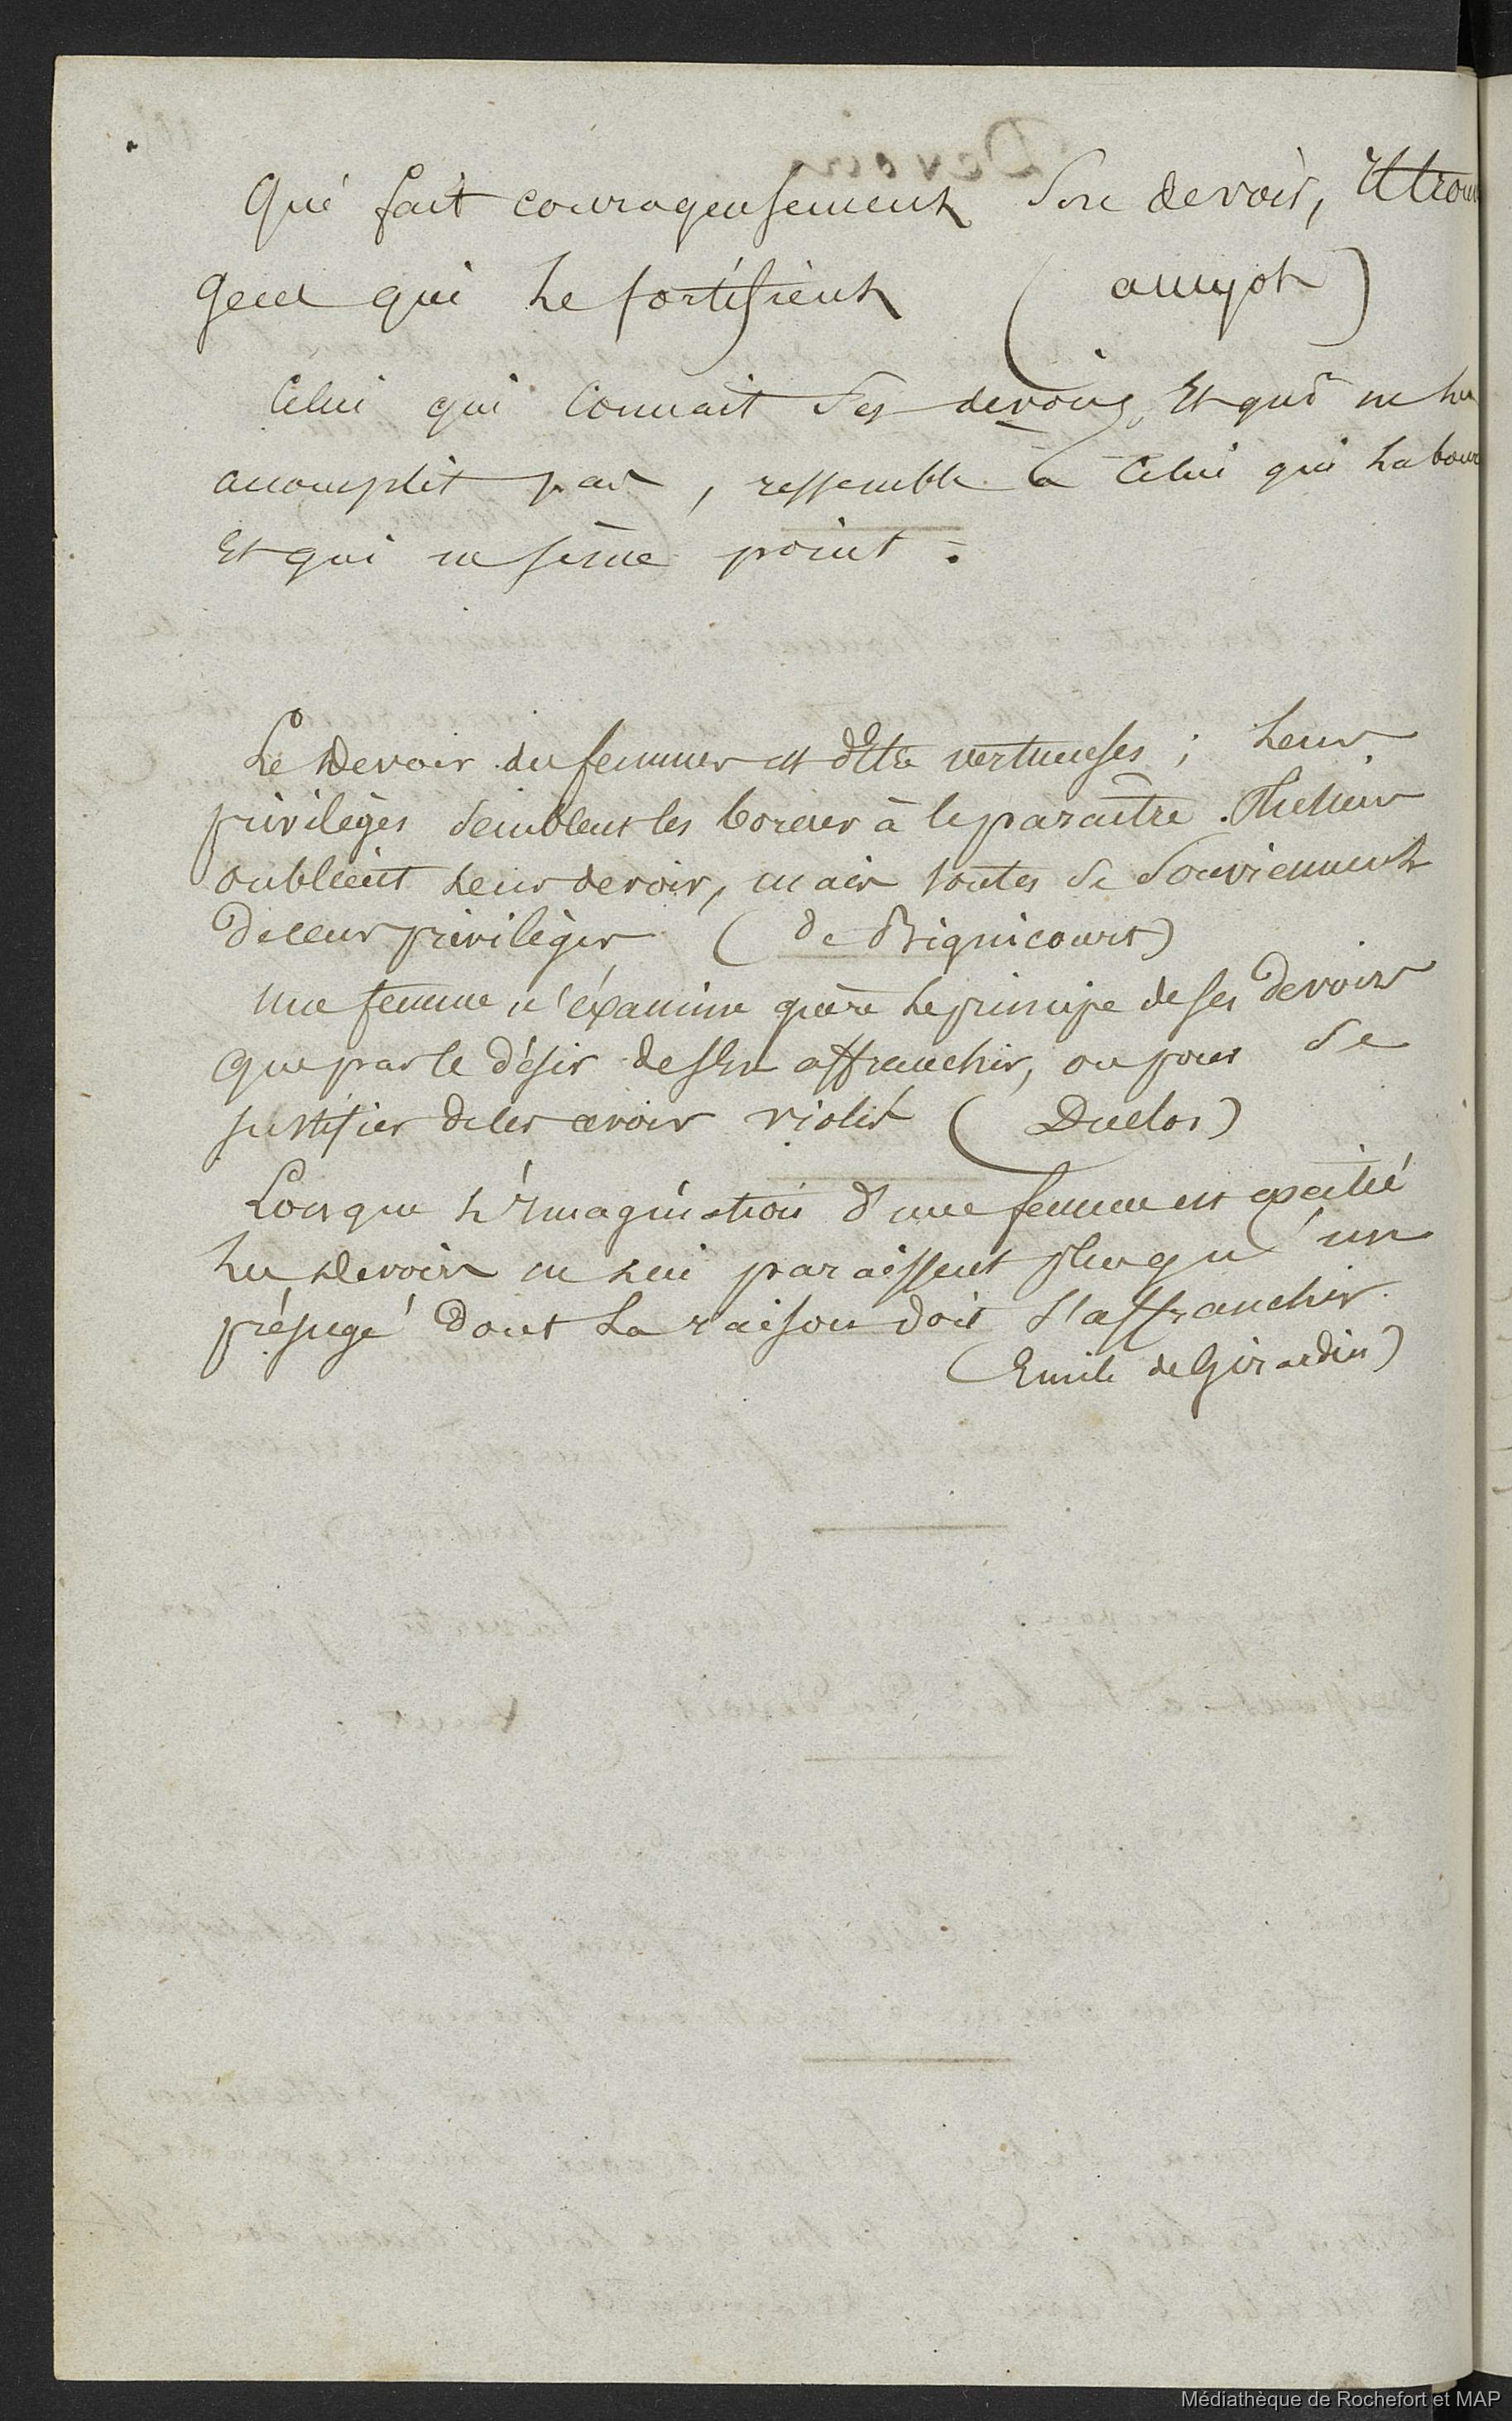 Qui fait courageusement son devoir, Il trou
gens qui le fortifient (amyot)
Celui qui connait ses devoirs, Et qui ne les
accomplit pas, ressemble à Celui qui labour
Et qui ne sème point.
Le Devoir des femmes est d'Etre vertueuses; leurs
privilèges semblent les borner à le paraître. Plusieurs
oublient leur devoir, mais toutes se souviennent
de leurs privilèges (de Bignicourt)
Une femme n'éxamine guère le principe de ses Devoirs
que par le désir de s'En affranchir, ou pour se
justifier de les avoir violés (Duclos)
Lorsque l'Imagination d'une femme est excitée
les devoirs ne lui paraissent plus qu'un
préjugé dont la raison doit s'affranchir.
(Emile de Girardin)
Devoir
Médiathèque de Rochefort et MAP